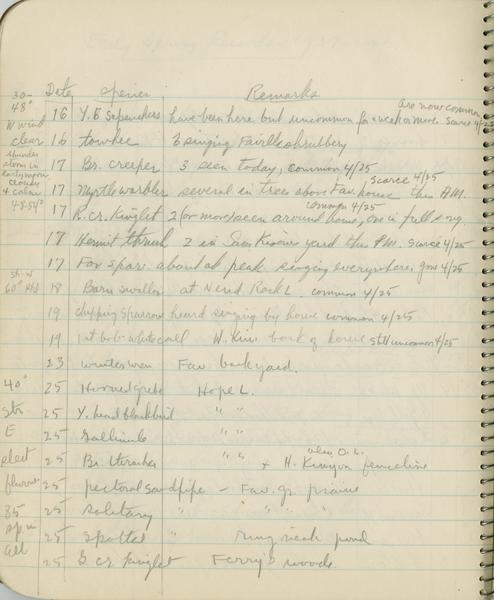 Date Species Remarks
30-
48°
are now common
16 Y. B sapsuckers have been here but uncommon for a week or more. scarce 4/25
N wind
clear 16 towhee 3 singing shrubbery
thunder
storm in
early morn
17 Br. creeper 3 seen today, common 4/25
cloudy
& cold
scarce 4/25
17 Myrtle warbler several in trees above house this A.M.
48-54°
common 4/25
17 R. cr. Kinglet 2 (or more) seen around house, one in full song.
17 Hermit thrush 2 in yard this P.M. scarce 4/25
17 Fox spar. abundant peak singing everywhere, gone 4/25
60°
18 Barn swallow at N end Rock L. common 4/25
19 chipping sparrow heard singing by house common 4/25
19 1st bob-white call W. back of house still uncommon 4/25
23 winter wren Fav. backyard.
40° 25 Horned grebe Hope L.
25 Y. head blackbird " "
E 25 Gallinule " "
also O. L.
25 Br. thrasher " " + H. Kenyon fenceline
25 pectoral sandpipe - Fav. gr. prairie
85 25 solitary " " " "
25 spotted " ring neck pond
25 G. cr. Kinglet Ferry's woods